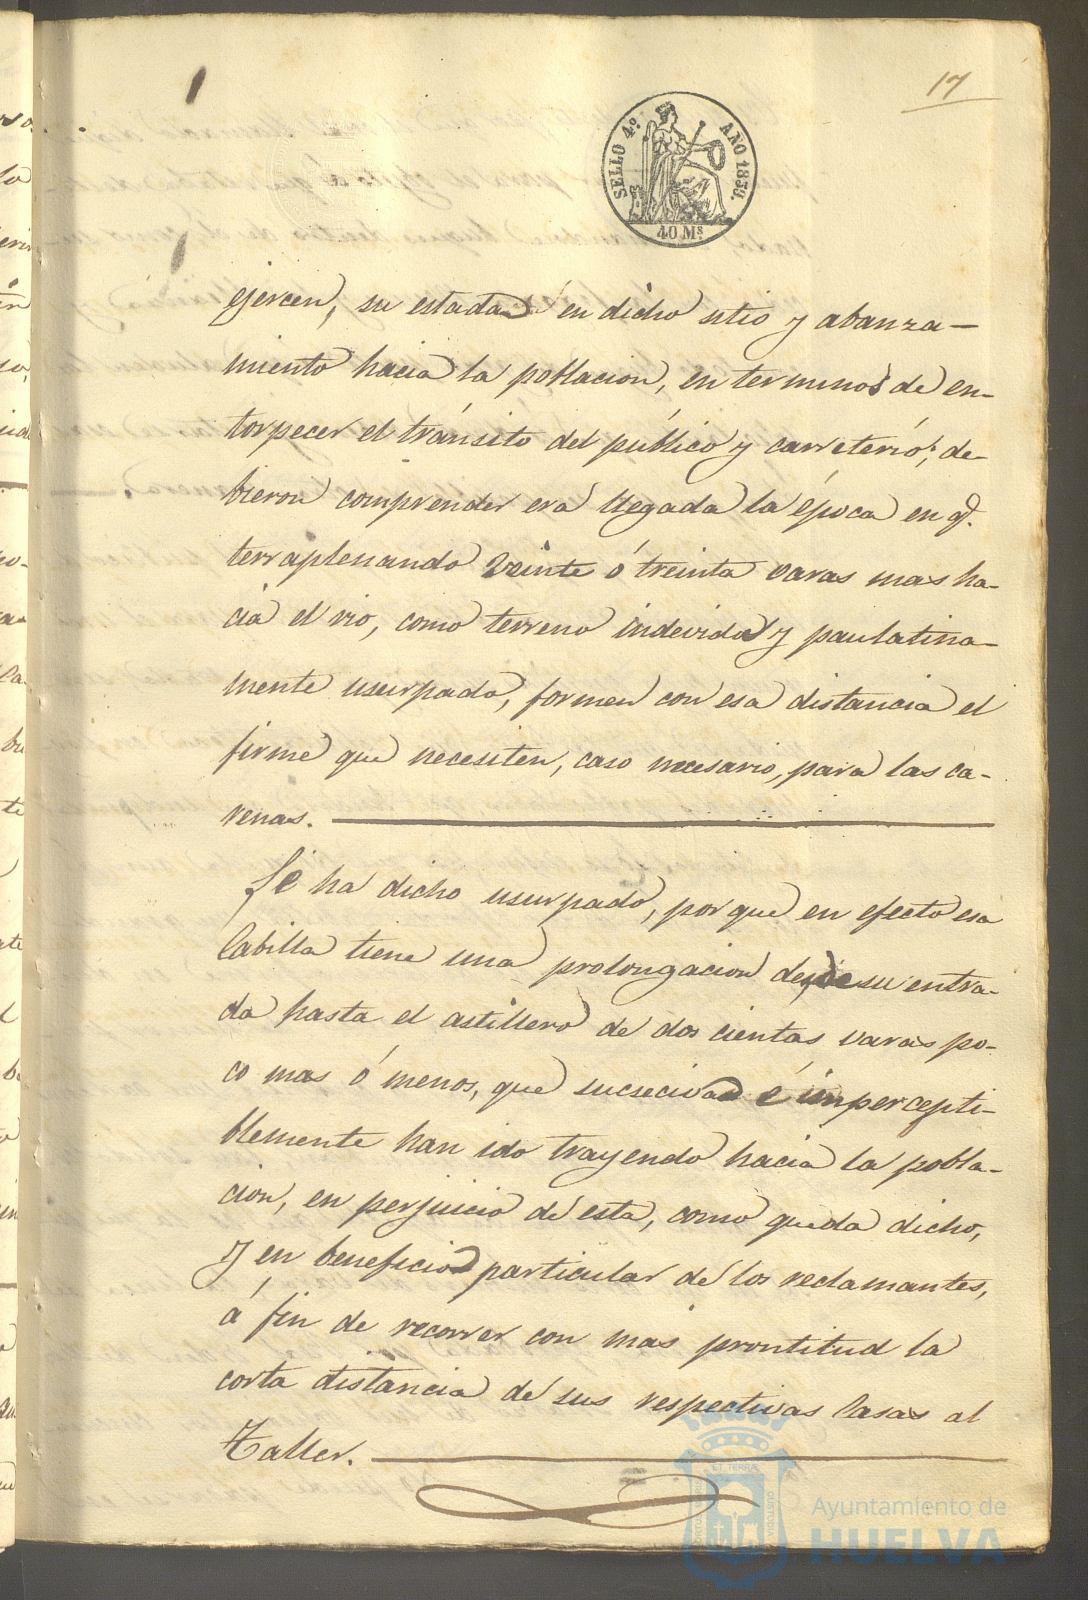 17
SELLO 4º AÑO 1859.
40 Ms
ejercen, su estada en dicho sitio y abanza-
miento hacia la poblacion, en terminos de en-
torpecer el tránsito del público y carreterió; de-
bieron comprender era llegada la época en q.
terraplenando veinte ó treinta varas mas ha-
cia el rio, como terreno indevida y paulatina-
mente usurpado, formen con esa distancia el
firme que necesiten, caso necesario, para las ca-
renas.
Se ha dicho usurpado, porque en efecto esa
Cabilla tiene una prolongacion desde su entra-
da hasta el astillero de dos cientas varas po-
co mas ó menos, que sucseciva é impercepti-
blemente han ido trayendo hacia la pobla-
cion, en perjuicio de esta, como queda dicho,
y en beneficio particular de los reclamantes,
á fin de recorrer con mas prontitud la
corta distancia de sus respectivas Casas al
Taller.
Ayuntamiento de
HUELVA